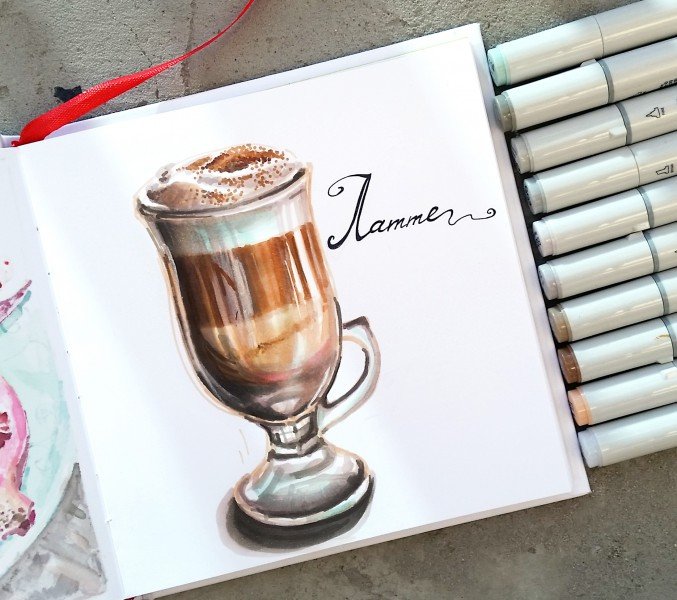 Латте